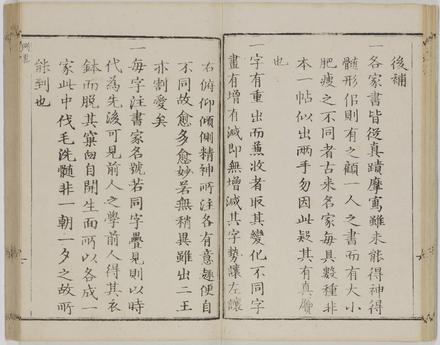 後補
一各家書皆從真蹟摩寫雖未能得神得
髓形佀則有之顧一人之書而有大小
肥瘦之不同者古来名家每具數種非
本一帖似出兩手勿因此疑其有真贋
也
一字有重出而蕪收者取其變化不同字
畫有增有減即無增減其字勢讓左讓
右俯仰傾側精神所注各有意趣便自
不同故愈多愈妙若無稍異雖出二王
亦割愛矣
一每字注書家名號若同字疊見則以時
代為先後可見前人之學前人得其衣
鉢而脱其窠臼自開生面所以各成一
家此中伐毛洗髓非一朝一夕之故所
能到也